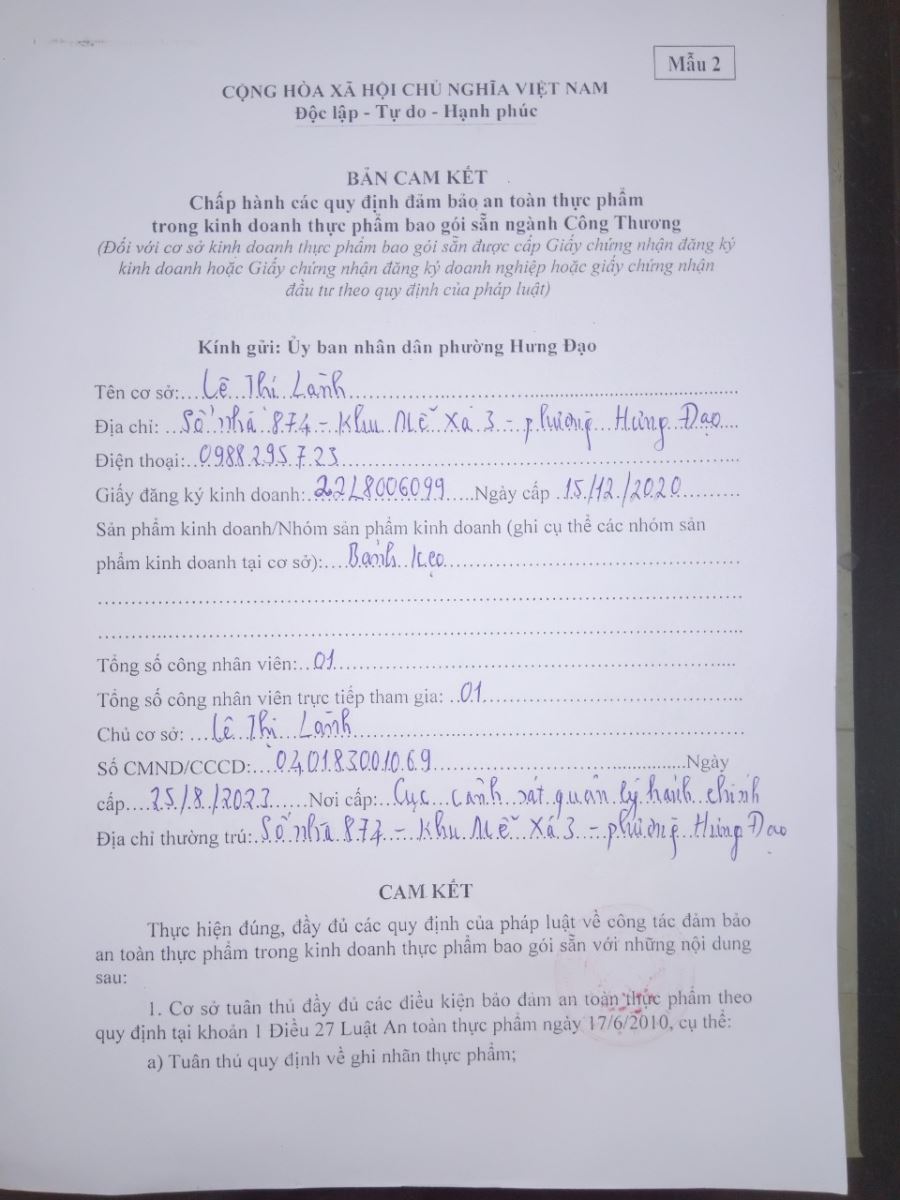 Mẫu 2
CỘNG HÒA XÃ HỘI CHỦ NGHĨA VIỆT NAM
Độc lập - Tự do - Hạnh phúc
BẢN CAM KẾT
Chấp hành các quy định đảm bảo an toàn thực phẩm
trong kinh doanh thực phẩm bao gói sẵn ngành Công Thương
(Đối với cơ sở kinh doanh thực phẩm bao gói sẵn được cấp Giấy chứng nhận đăng ký
kinh doanh hoặc Giấy chứng nhận đăng ký doanh nghiệp hoặc giấy chứng nhận
đầu tư theo quy định của pháp luật)
Kính gửi: Ủy ban nhân dân phường Hưng Đạo
Tên cơ sở: Lê Thị Lành
Địa chỉ: Số nhà 874 - Khu Mễ Xá 3 - phường Hưng Đạo
Điện thoại: 0988295723
Giấy đăng ký kinh doanh: 22L8006099 Ngày cấp 15/12/2020
Sản phẩm kinh doanh/Nhóm sản phẩm kinh doanh (ghi cụ thể các nhóm sản
phẩm kinh doanh tại cơ sở): Bánh kẹo
Tổng số công nhân viên: 01
Tổng số công nhân viên trực tiếp tham gia: 01
Chủ cơ sở: Lê Thị Lành
Số CMND/CCCD: 040183001069 Ngày
cấp 25/8/2023 Nơi cấp: Cục cảnh sát quản lý hành chính
Địa chỉ thường trú: Số nhà 874 - Khu Mễ Xá 3 - phường Hưng Đạo
CAM KẾT
Thực hiện đúng, đầy đủ các quy định của pháp luật về công tác đảm bảo
an toàn thực phẩm trong kinh doanh thực phẩm bao gói sẵn với những nội dung
sau:
1. Cơ sở tuân thủ đầy đủ các điều kiện bảo đảm an toàn thực phẩm theo
quy định tại khoản 1 Điều 27 Luật An toàn thực phẩm ngày 17/6/2010, cụ thể:
a) Tuân thủ quy định về ghi nhãn thực phẩm;